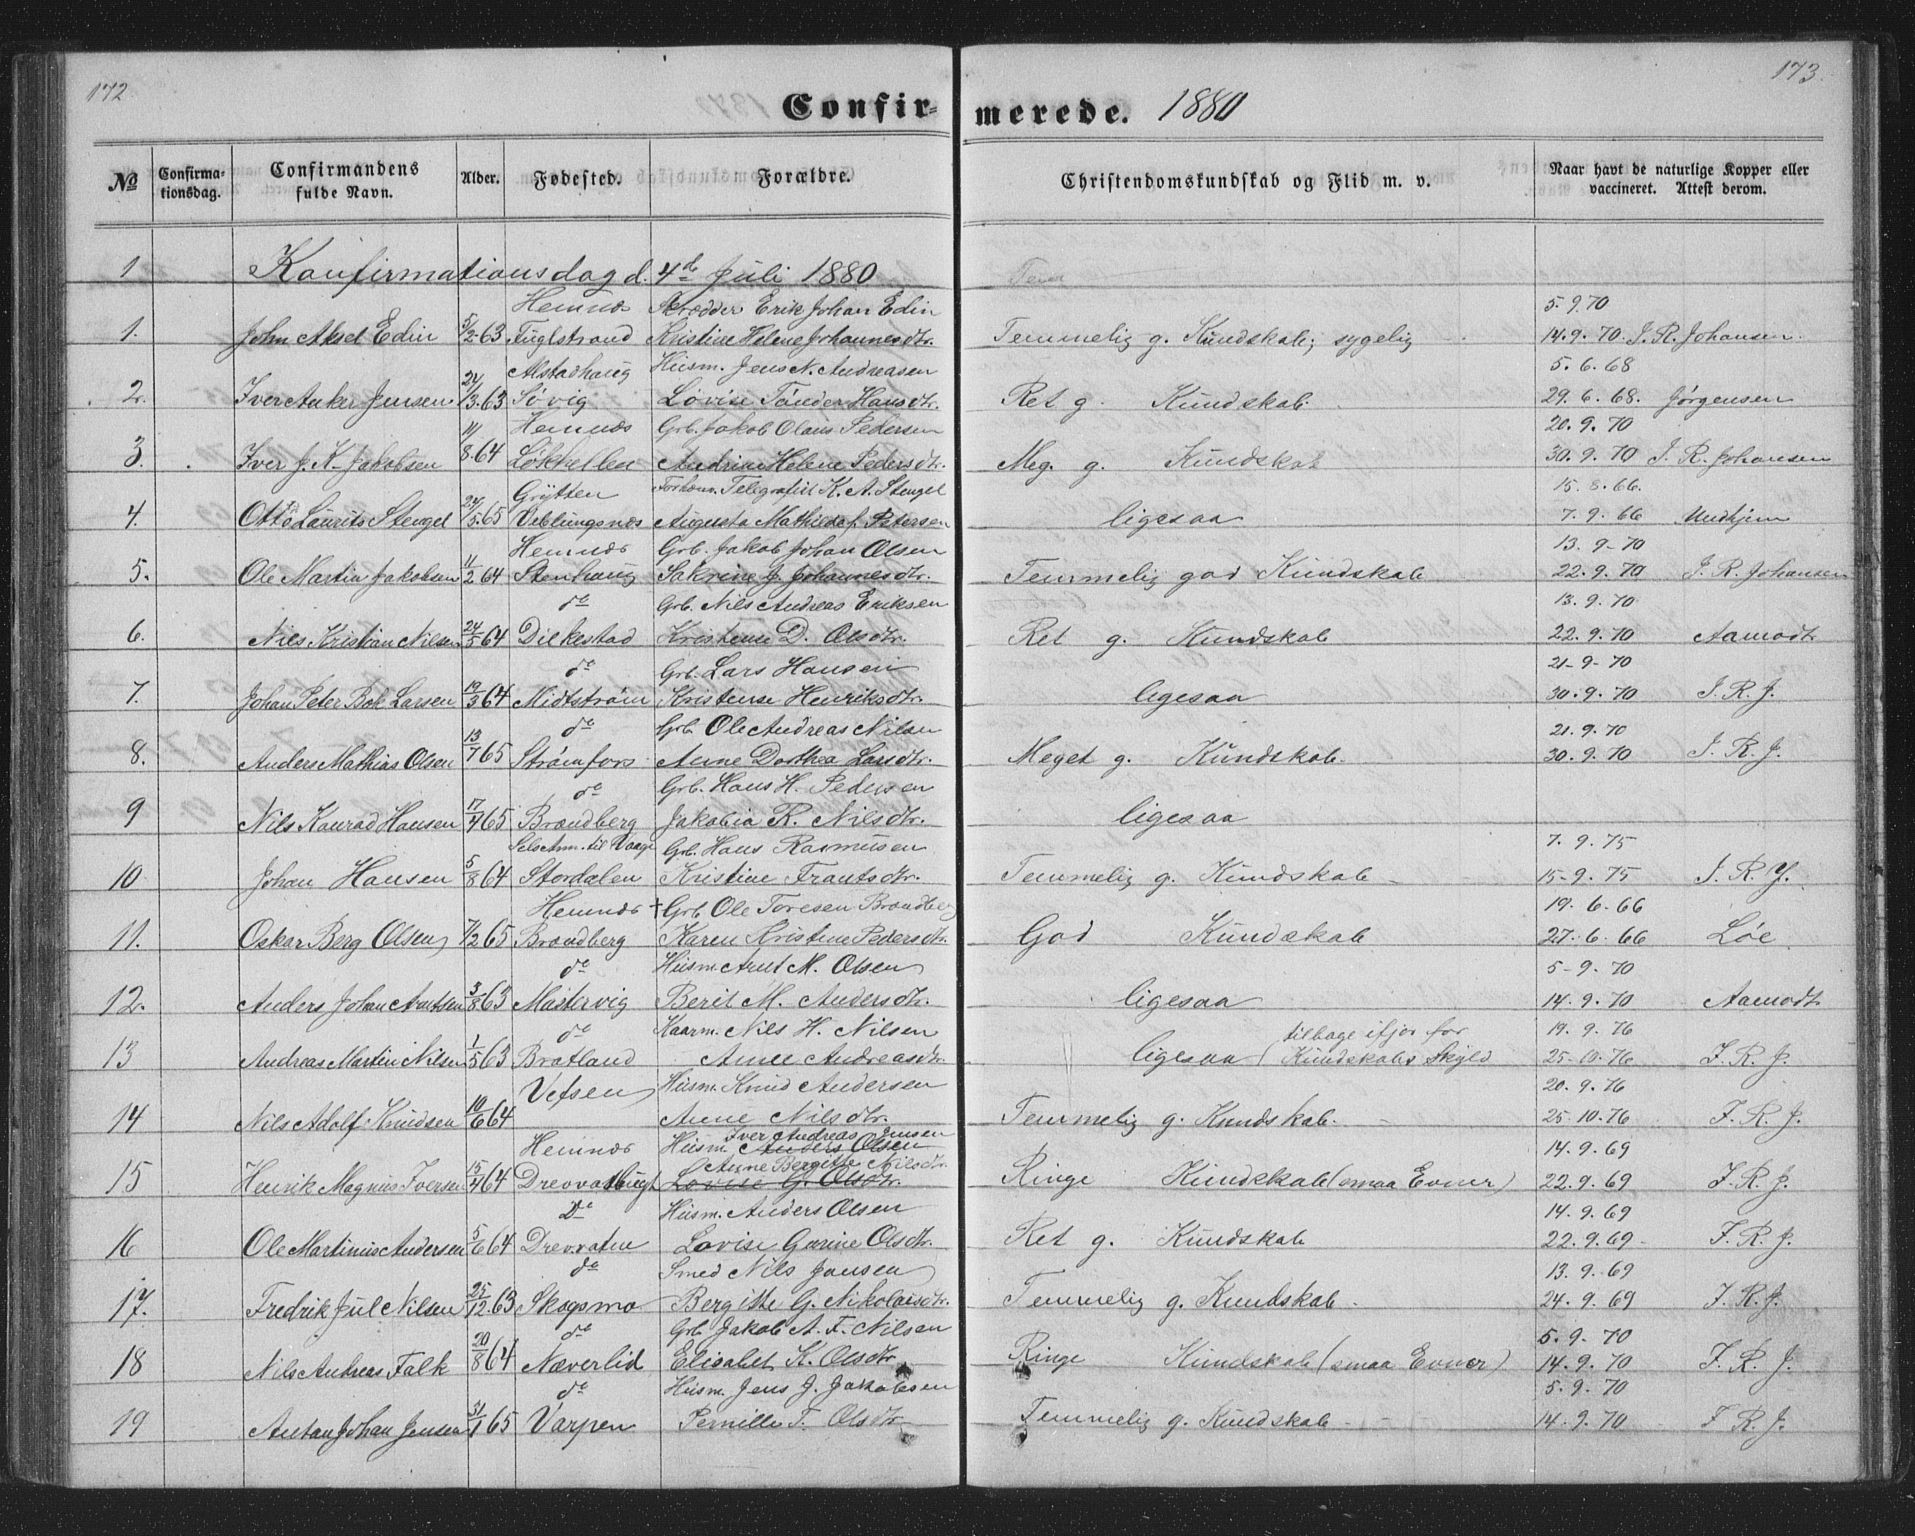 172
173.
Confir-
merede. 1880
No
Confirma-
tionsdag.
Confirmandens
fulde Navn.
Alder.
Fødested.
Forældre.
Christendomskundskab og Flid m. v.
Naar havt de naturlige Kopper eller
vaccineret. Attest derom.
1 Konfirmationsdag d. 4de Juli 1880
Hemnæs Skrædder Erik Johan Edin 5.9.70
1. John Aksel Edin 5/2-63 Fuglstrand Kristine Helene Johannesdtr. Temmelig g. Kundskab; sygelig 14.9.70 J. R. Johansen.
Alstadhaug Husm. Jens N. Andreasen 5.6.68
2. Iver Anker Jensen 24/3.63 Søvig Lovise Tønder Hansdtr. Ret g. Kundskab. 29.6.68. Jørgensen
Hemnæs Grb. Jakob Olaus Pedersen 20.9.70
3. Iver J. K. Jakobsen 11/8.64 Løkhellen Andrine Helene Pedersdtr. Meg. g. Kundskab 30.9.70 J. R. Johansen
Grytten Forhenv. Telegrafist K. A. Stengel 15.8.66.
4. Otto Laurits Stengel 24/5.65 Veblungsnæs Augusta Mathilde f. Petersen ligesaa 7.9.66
Hemnæs Grb. Jakob Johan Olsen 13.9-70
5. Ole Martin Jakobsen 11/2 64 Stenhaug Sakrine J. Johannesdtr. Temmelig god Kundskab 22.9.70 J. R. Johansen
do Grb. Nils Andreas Eriksen 13.9.70
6. Nils Kristian Nilsen 24/5 64 Dilkestad Kristense D. Olsdtr. Ret g. Kundskab 22.9.70 Aamodt
do Grb. Lars Hansen 21-9-70
7. Johan Peter Bok Larsen 19/3 64 Midtstrøm Kristense Henriksdtr. ligesaa 30.9.70 J. R. J.
do Grb. Ole Andreas Nilsen 21.9.70
8. Anders Mathias Olsen 13/7 65 Strømfors Anne Dorthea Larsdtr. Meget g. Kundskab. 30.9.70 J. R. J.
do Grb. Hans H. Pedersen
9 Nils Konrad Hansen 17/4 65 Brændberg Jakobia R. Nilsdtr. ligesaa
Sels Ann. til Vaage Grb. Hans Rasmusen 7.9.75
10 Johan Hansen 5/8 64 Stordalen Kristine Frantsdtr. Temmelig g. Kundskab 15-9.75 J. R. J.
Hemnæs † Grb. Ole Toresen Brændberg 19.6.66
11. Oskar Berg Olsen 7/2 65 Brændberg Karen Kristine Pedersdtr. God Kundskab 27.6.66 Løe
do Husm. Arnt M. Olsen 5-9.70
12. Anders Johan Arntsen 3/8 63 Mastervig Berit M. Andersdtr. ligesaa 14.9.70 Aamodt
do Kaarm. Nils H. Nilsen tilbage ifjor for 19.9.76
13 Andreas Martin Nilsen 1/5 63 Bratland Anne Andreasdtr. ligesaa (Kundskabs Skyld 25-10.76 J. R. J.
Vefsen Husm. Knud Andersen 20.9.76
14 Nils Adolf Knudsen 10/6 64 Anne Nilsdtr. Temmelig g. Kundskab. 25.10.76 J. R. J.
Hemnæs Husm. Anders Olsen Iver Andreas Jensen 14.9.69
Anne Bergitte Nilsdtr.
15 Henrik Magnus Iversen 15/4 64 Drevvatbugt Lovise G. Olsdtr. Ringe Kundskab (smaa Evner) 22.9.69 J. R. J.
Do Husm. Anders Olsen 14.9.69
16 Ole Martinus Andersen 5/6 64 Drevvaten Lovise Gurine Olsdtr. Ret g. Kundskab 22.9.69- J. R. J.
do Smed Nils Jansen 13.9.69
17. Fredrik Jul Nilsen 25/12 63 Skogsmo Bergitte G. Nikolaisdtr. Temmelig g. Kundskab. 24.9.69 J. R. J.
do Grb. Jakob A. F. Nilsen 5.9.70
18 Nils Andreas Falk 20/8 64 Næverlid Elisabet K. Olsdtr. Ringe Kundskab (smaa Evner) 14.9.70 J. R. J.
do Husm. Jens J. Jakobsen 5.9.70
19 Antan Johan Jensen 31/1 65 Varpen Pernille T. Olsdtr. Temmelig g. Kundskab 14.9.70 J. R. J.